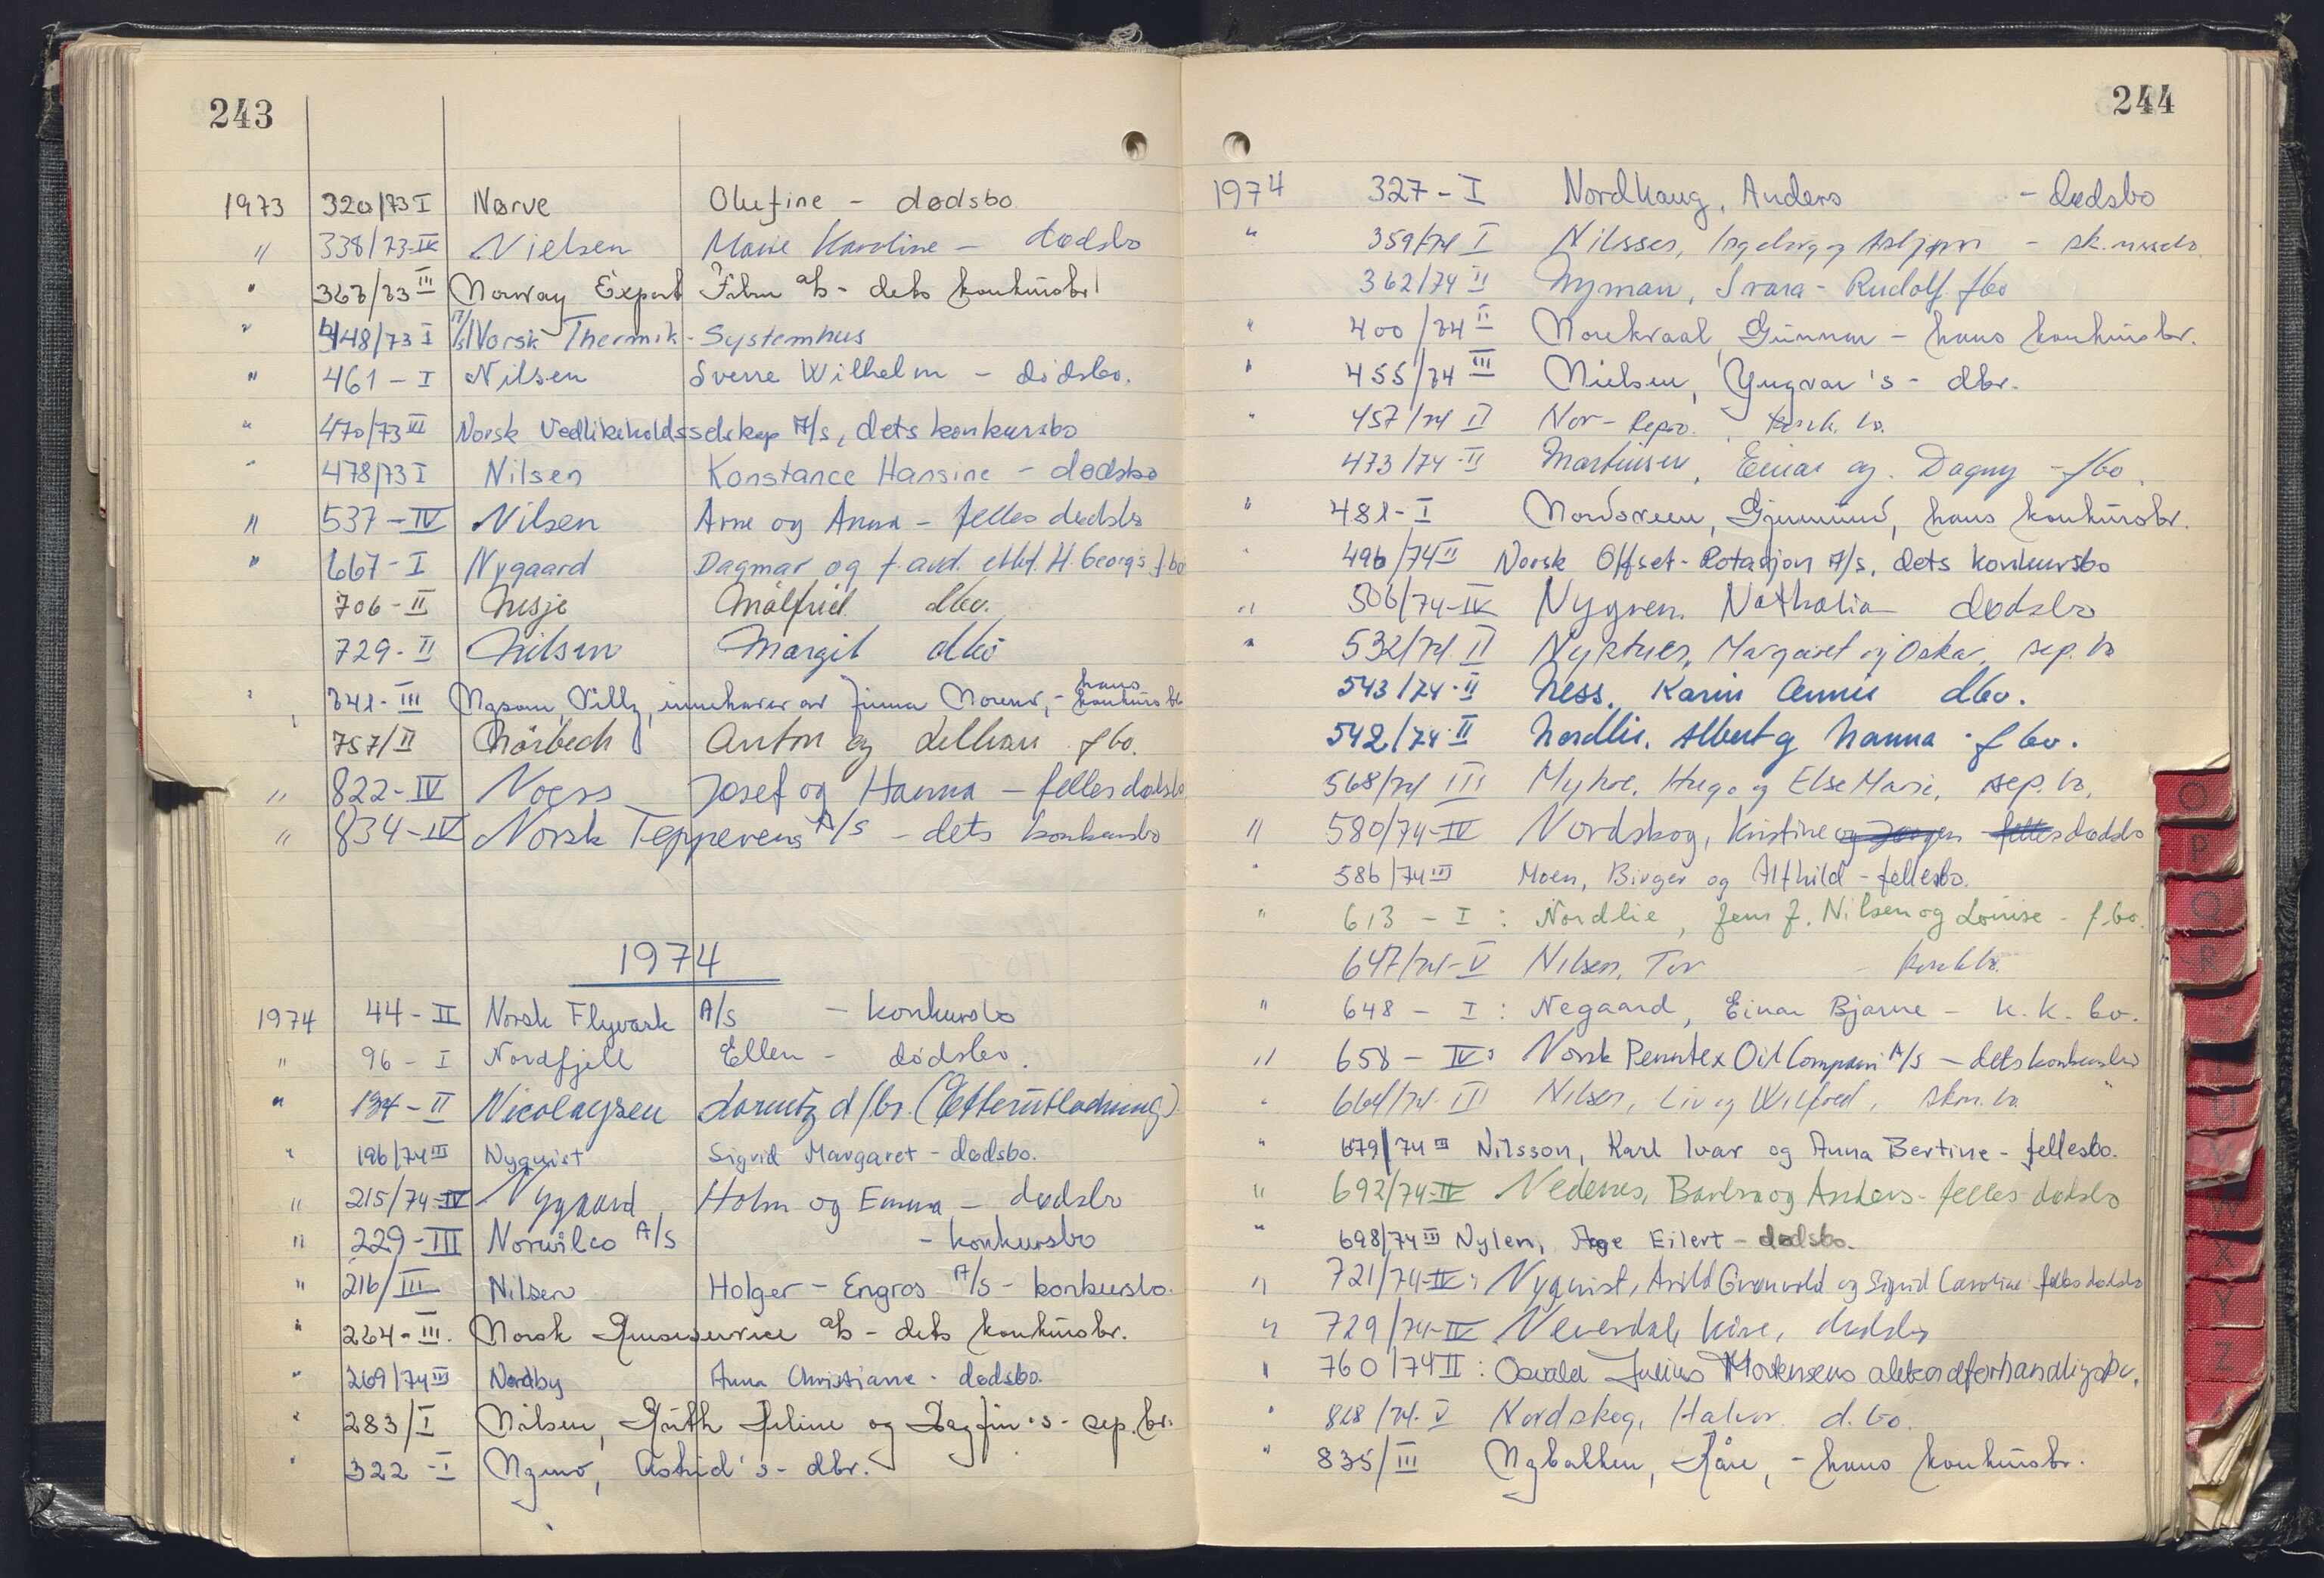 243
1973 320/73 I Nørve Olufine - dødsbo
" 338/73-IV Nielsen Marie Karoline - dødsbo
" 363/73 III Norway Export Film a/s - dets konkursbo
" 448/73 I A/S Norsk Thermik-Systemhus
" 461 - I Nilsen Sverre Wilhelm - dødsbo.
" 470/73 III Norsk Vedlikeholdsselskap A/s, dets konkursbo
" 478/73 I Nilsen Konstance Hansine - dødsbo
" 537-IV Nilsen Arne og Anna - felles dødsbo
" 667-I Nygaard Dagmar og f. avd. ektef. H. Georg's f.bo
706-II Nesje Målfrid dbo.
729-II Nilsen Margit dbo
" 741-III Nysom, Villy, innehaver av firma Norend, - hans konkursbo
757/II Nörbech Anton og Lillian fbo.
" 822-IV Noess Josef og Hanna - felles dødsbo
" 834-IV Norsk Teppevens A/S - dets konkursbo
1974
1974 44-II Norsk Flyvask A/S - konkursbo
" 96 - I Nordfjell Ellen - dødsbo.
" 134-II Nicolaysen Lorentz d/bo. (Etterutlodning)
" 196/74 III Nyquist Sigrid Margaret - dødsbo.
" 215/74-IV Nygaard, Holm og Emma - dødsbo
" 229-III Norwilco A/S - konkursbo
" 216/III Nilsen Holger - Engros A/S - konkursbo.
" 264-III. Norsk service a/s - dets konkursbo.
" 269/74 III Nordby Anna Christiane - dødsbo.
" 283/I Nilsen, Ruth Heline og Dagfin's - sep. bo.
" 322 - I Nymo, Astrid's - dbo.
244
1974 327-I Nordhaug, Anders - dødsbo
" 359/74 I Nilssen, Ingeborg og Asbjørn - sk.
362/74 II Nyman, Svara - Rudolf fbo
" 400/74 II Gunnar - hans konkursbo.
" 455/74 III Nielsen, Yngvar's - dbo.
" 457/74 II Nor-Repro. konk. bo.
473/74-II Martinsen, Einar og Dagny - fbo.
" 481-I Nordsveen, Gjermund, hans konkursbo.
" 496/74 II Norsk Offset-Rotasjon A/s, dets konkursbo
" 506/74-IV Nygren, Nathalia dødsbo
" 532/74 II Margaret og Oskar, sep. bo
543/74-II Ness, Karin Annie dbo.
542/74-II Nordlie, Albert og Nanna - fbo.
568/74 III Myhre, Hugo og Else Marie, sep. bo,
" 580/74-IV Nordskog, Kristine og Jørgen felles dødsbo
" 586/74 III Moen, Birger og Alfhild - fellesbo.
" 613 - I : Nordlie, Jens J. Nilsen og Louise - f.bo.
647/74-V Nilsen, Tor konk.bo.
" 648 - I : Negaard, Einar Bjarne - k.k. bo.
" 658 - IV: Norsk Penntex Oil Compani A/S - dets konkursbo
" 664/74 III Nilsen, Liv og Wilfred, skm. bo. "
" 679/74 III Nilsson, Karl Ivar og Anna Bertine - fellesbo.
" 692/74-IV Nedenes, Barbra og Anders - felles dødsbo
" 698/74 III Nylen, Åge Eilert - dødsbo.
" 721/74-IV: Nyquist, Arild Grønvold og Sigrid Caroline felles dødsbo
" 729/74-IV Neverdal, Kåre, dødsbo
" 760/74 II : Osvald Julius Mortensens akkordforhandlingsbo.
" 828/74. V Nordskog, Halvor d.bo.
" 835/III Nybakken, Kåre, - hans konkursbo.
O
P
Q
R
U
V
W
X
Y
Z